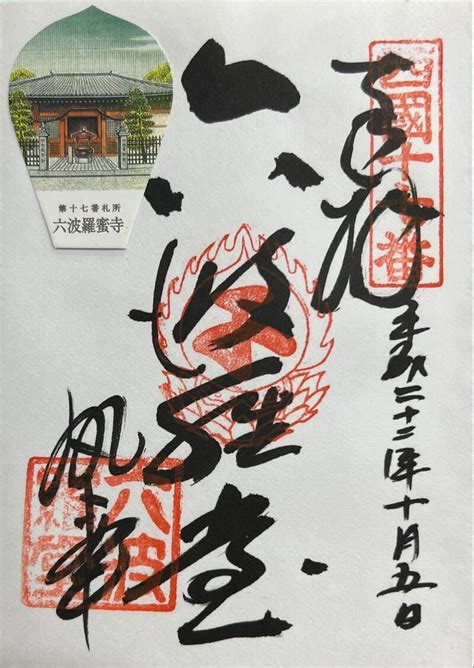 西國十七番
奉拝
平成二十二年十月五日
六波羅堂
六波羅堂
第十七番札所
六波羅蜜寺